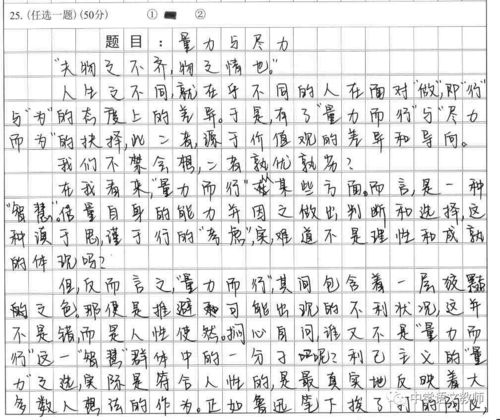 25. (任选一题)(50分) ① ②
题目：量力与尽力
"夫物之不齐，物之情也。"
人生之不同，就在乎不同的人在面对"做"，即"行"
与"为"的态度上的差异。于是，有了"量力而行"与"尽力
而为"的抉择，此二者，源于价值观的差异和导向。
我们不禁会想，二者孰优孰劣？
在我看来，"量力而行"在某些方面而言，是一种
"智慧"，估量自身的能力并因之做出判断和选择，这
种须于思，谨于行的"考虑"，实难道不是理性和成熟
的体现吗？
但，反而言之，"量力而行"，其间包含着一层
的文色，那便是推避和可能出现的不利状况，这并
不是错，而是人性使然。扪心自问，谁又不是"量力而
行"这一"智慧"群体中的一分子呢？利己主义的"量
力"之选，实际是符合人性的，是最真实地反映着大
多数人想法的作为。正如鲁迅笔下挨了刀的阶级
中学语文教师